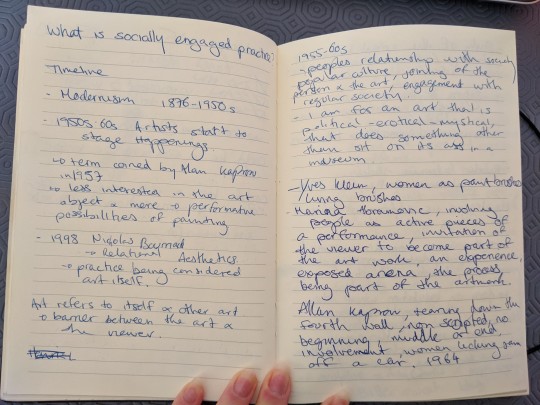 What is socially engaged practice?
Timeline
- Modernism 1876-1950s
- 1950s-60s Artists start to
stage Happenings
↳ term coined by Allan Kaprow
in 1957
↳ less interested in the art
object & more → performative
possibilities of painting
- 1998 Nicolas
→ Relational Aesthetics
→ practice being considered
art itself.
Art refers to itself & other art
→ barrier between the art &
the viewer.
1955-60s
- peoples relationship with society
popular culture, joining of the
person & the art, engagement with
regular society
- I am for an art that is
political-erotical-mystical,
that does something other
than sit on its ass in a
museum
- Yves Klein, women as paintbrushes/
living brushes
- Marina Abramovic, involving
people as active pieces of
a performance, invitation of
the viewer to become part of
the art work, an experience,
exposed arena, the process
being part of the artwork.
Allan Kaprow, tearing down the
fourth wall, non scripted, no
beginning, middle or end
involvement, women licking jam
off a car. 1964